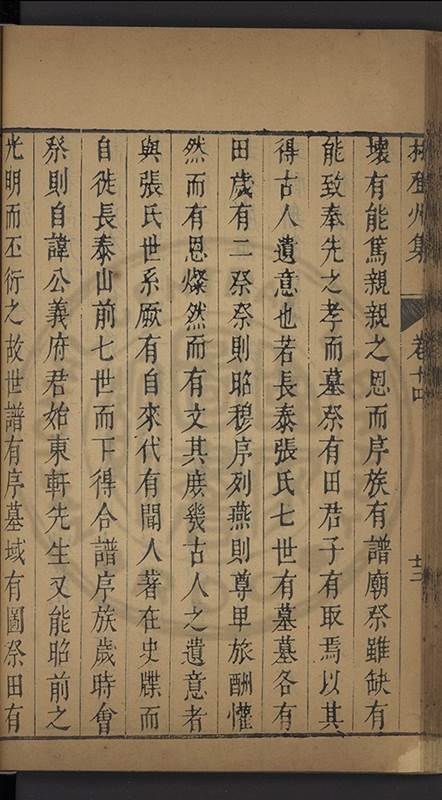 林登州集 卷十四 十三
壞有能篤親親之恩而序族有譜廟祭雖缺有
能致奉先之孝而墓祭有田君子有取焉以其
得古人遺意也若長泰張氏七世有墓墓各有
田歲有二祭祭則昭穆序列燕則尊卑旅酬懽
然而有恩燦然而有文其庶幾古人之遺意者
與張氏世系厥有自來代有聞人著在史牒而
自徙長泰山前七世而下得合譜序族歲時會
祭則自諱公義府君始東軒先生又能昭前之
光明而丕衍之故世譜有序墓域有圖祭田有